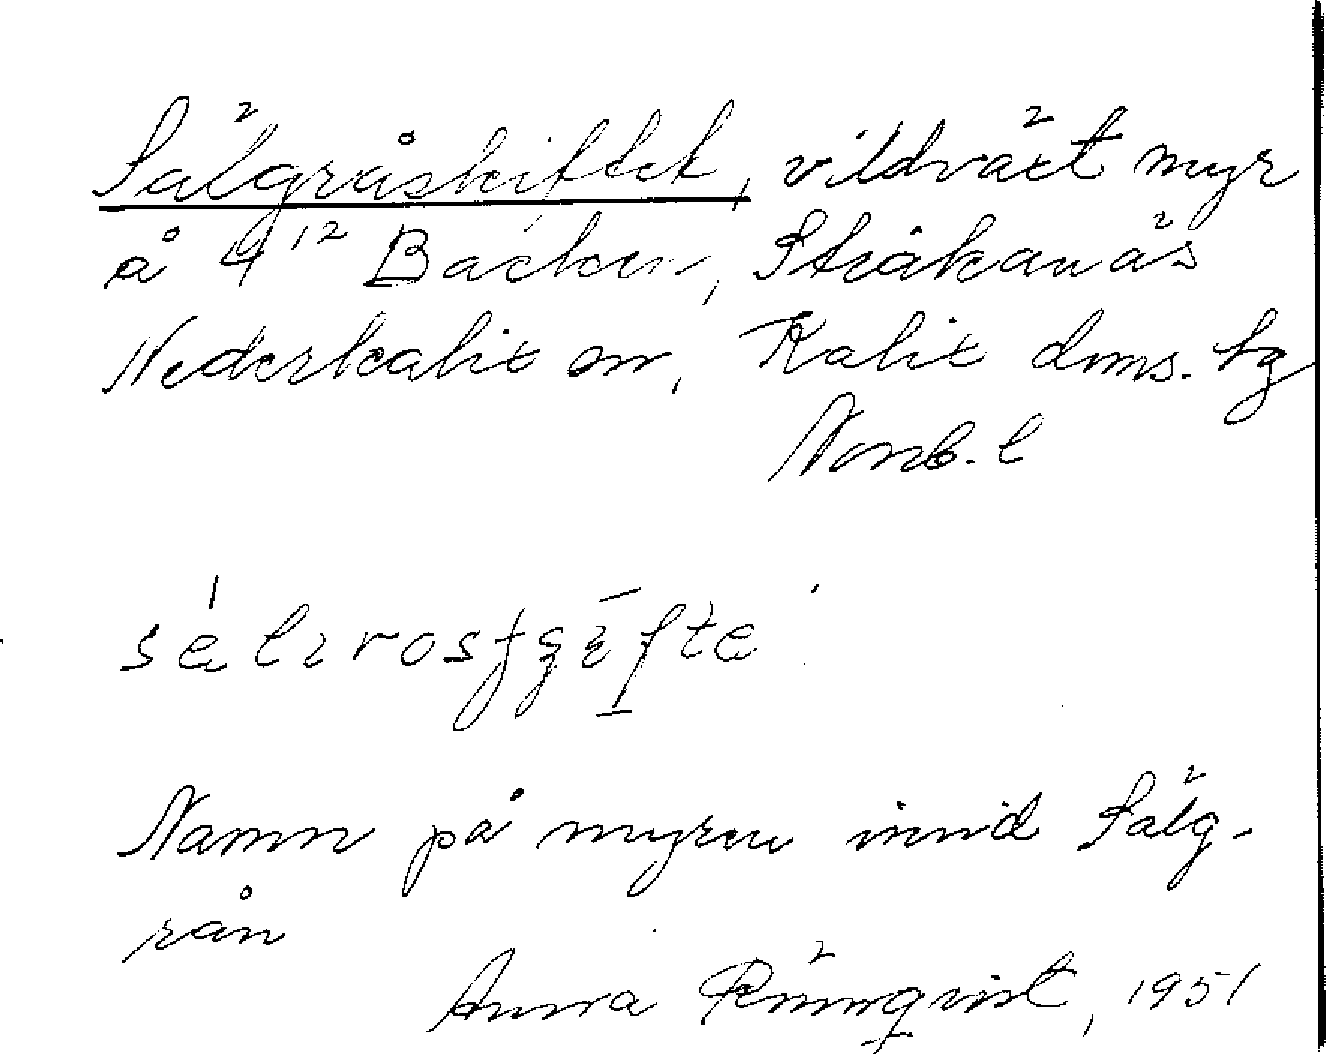 Sälgråskiftet, vildväxt myr
å 4¹² Bäcken, Stråkanäs
Nederkalix sn, Kalix doms. tg
Norrb. l
Namn på myren invid Sälg-
rån
Anna Rönnqvist, 1951